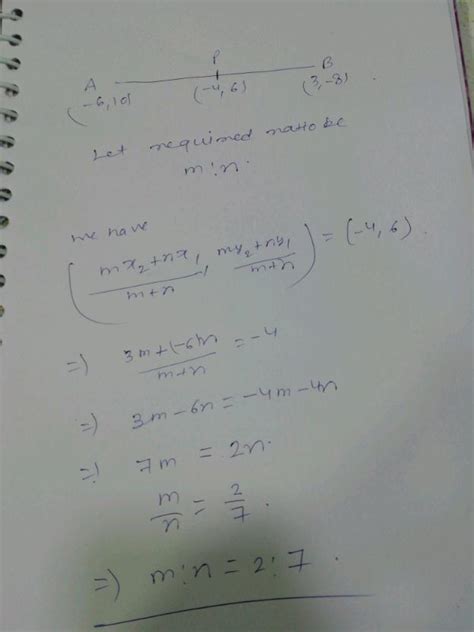 P
A B
(-6,10) (-4,6) (3,-8).
Let required ratio be
m:n.
we have
( mx₂+nx₁ / m+n , my₂+ny₁ / m+n ) = (-4,6).
=) 3m+(-6)n / m+n = -4
=) 3m-6n = -4m-4n
=) 7m = 2n.
m/n = 2/7.
=) m:n = 2:7.